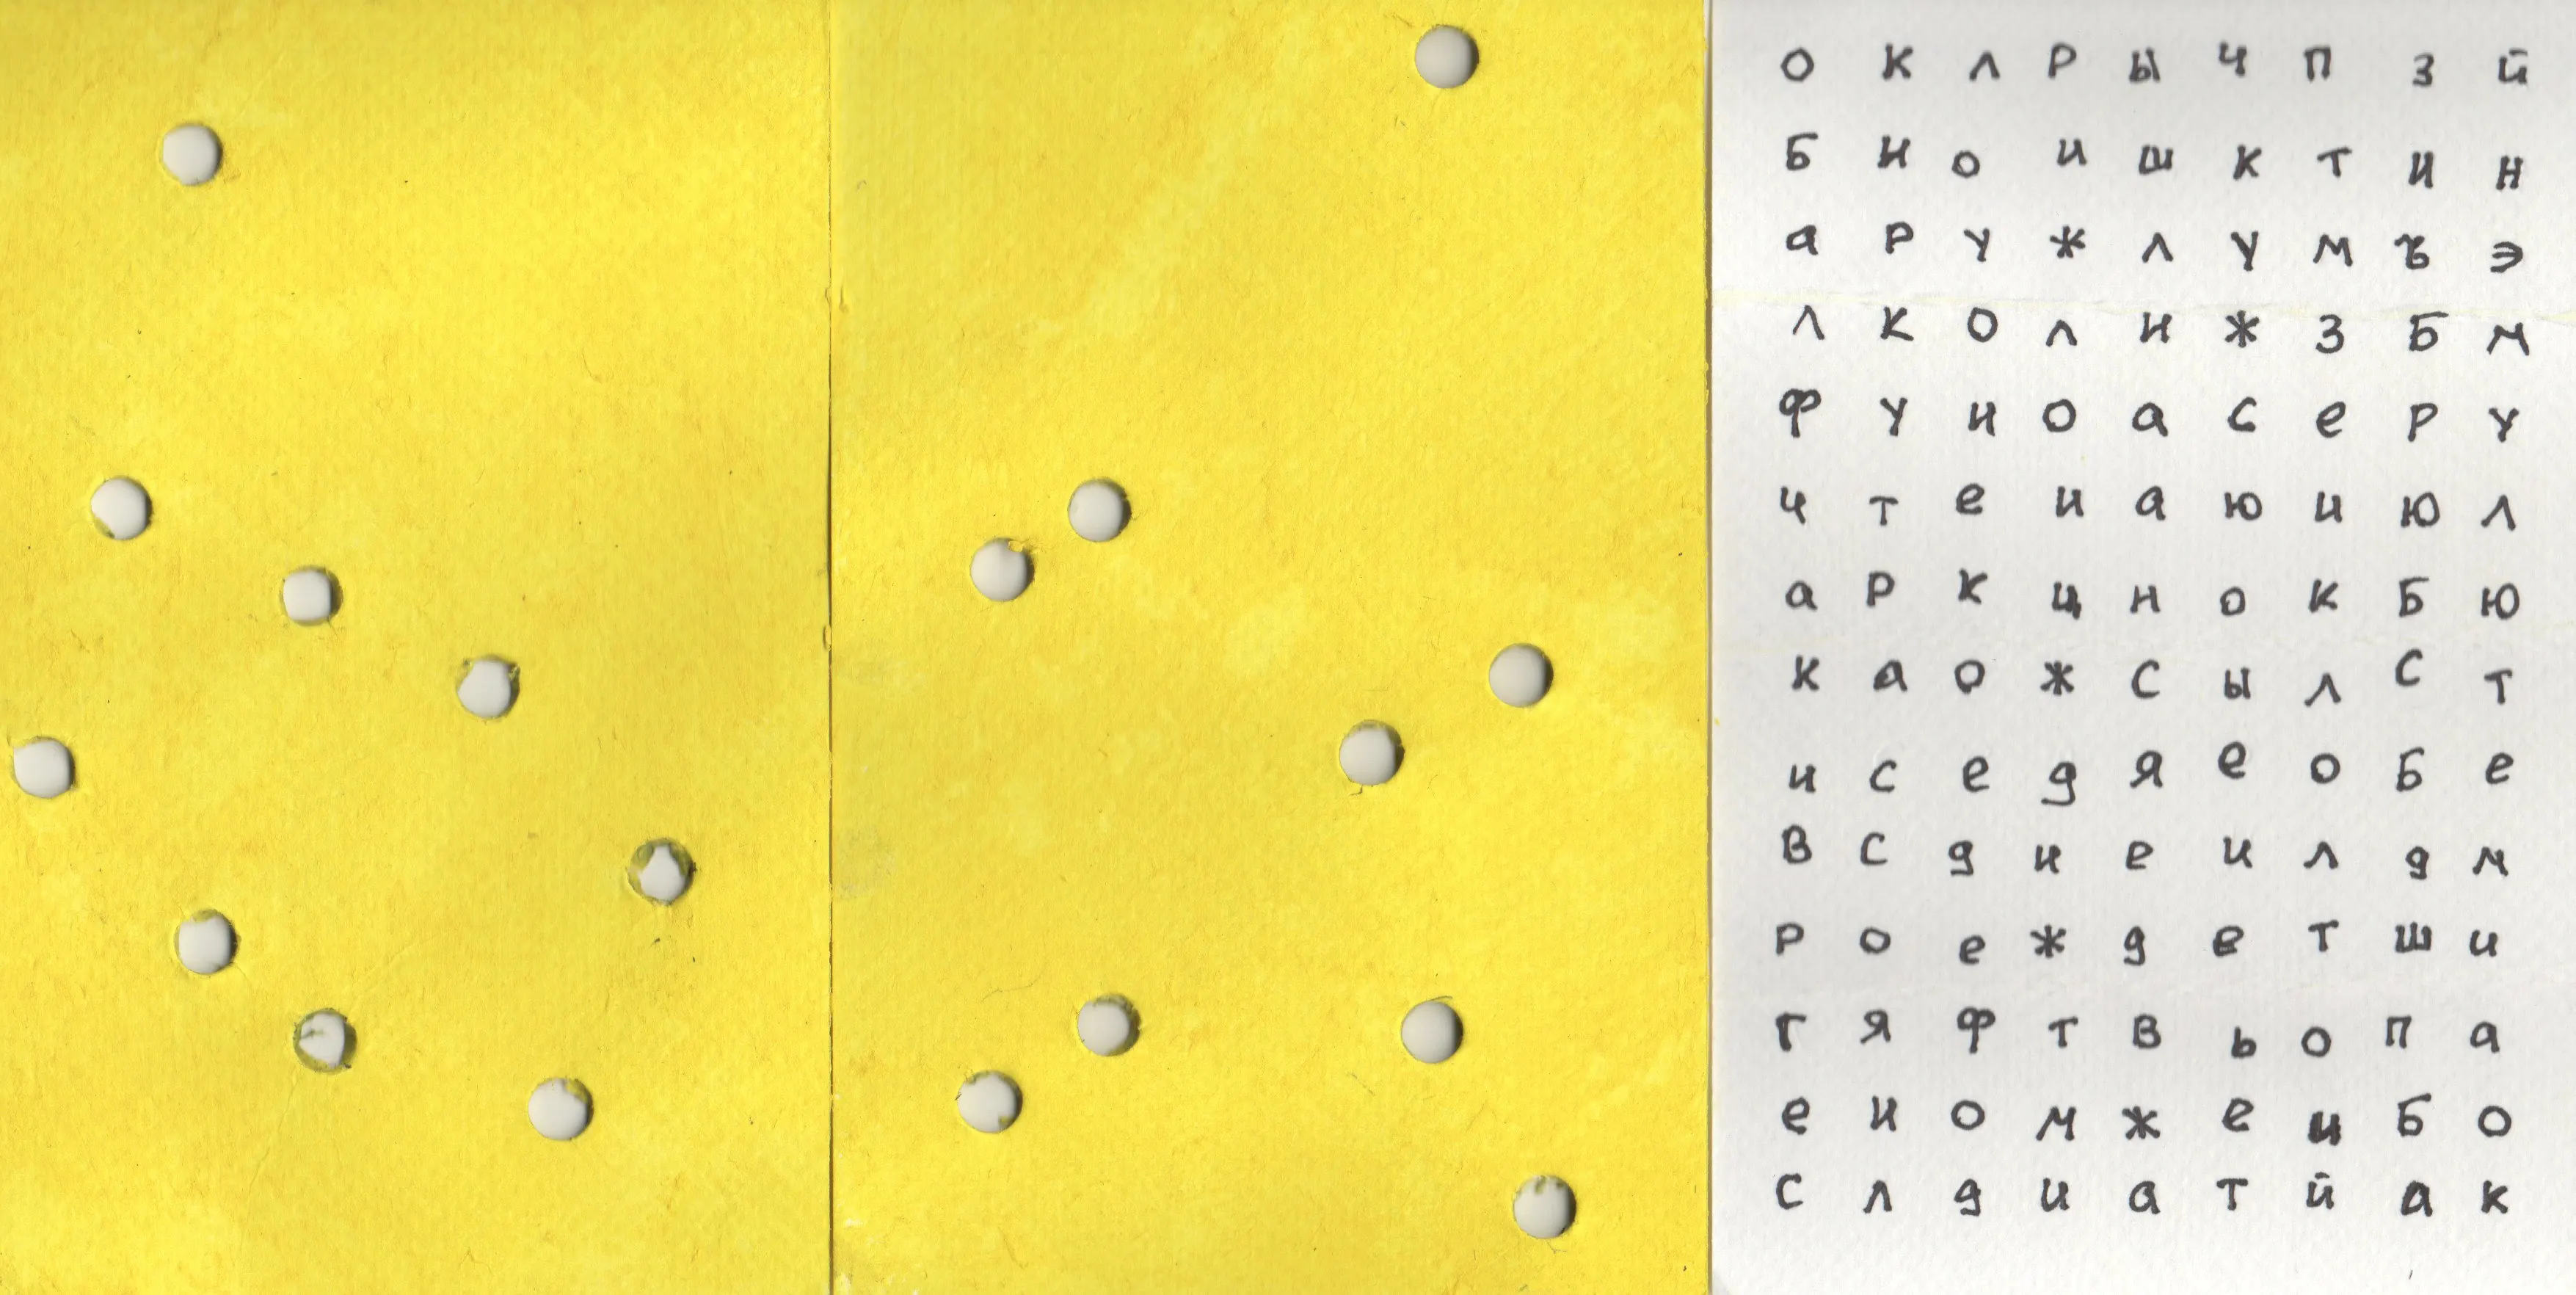 о к л р ы ч п з й
Б и о и ш к т и н
а р у ж л у м ъ э
л к о л и ж з Б м
ф у и о а с е р у
ч т е и а ю и ю л
а р к ц н о к Б ю
к а о ж с ы л с т
и с е д я е о Б е
в с д и е и л д м
р о е ж д е т ш и
г я ф т в ь о п а
е и о м ж е и Б о
с л д и а т й а к